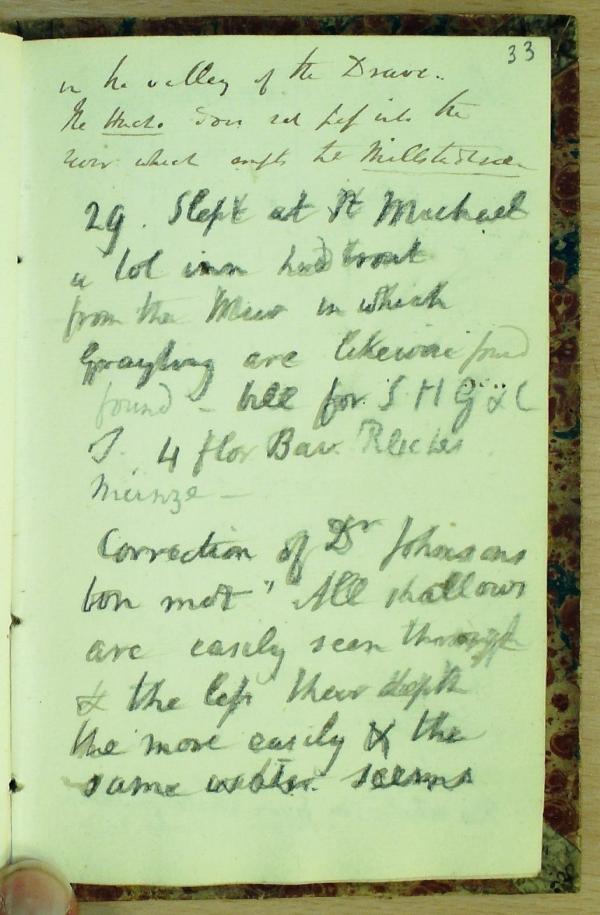 33
in the valley of the Drave.
The Hucho does not pass into the
river which empts the Millstadtsee
29. Slept at St Michael
a tol inn had trout
from the Muer in which
Grayling are likewise found
found - bill for S H G & C
J. 4 flor Bav. Reiches
Munze -
Correction of Dr Johnsons
bon mot " All shallows
are easily seen through
& the less their depth
the more easily & the
same water seems